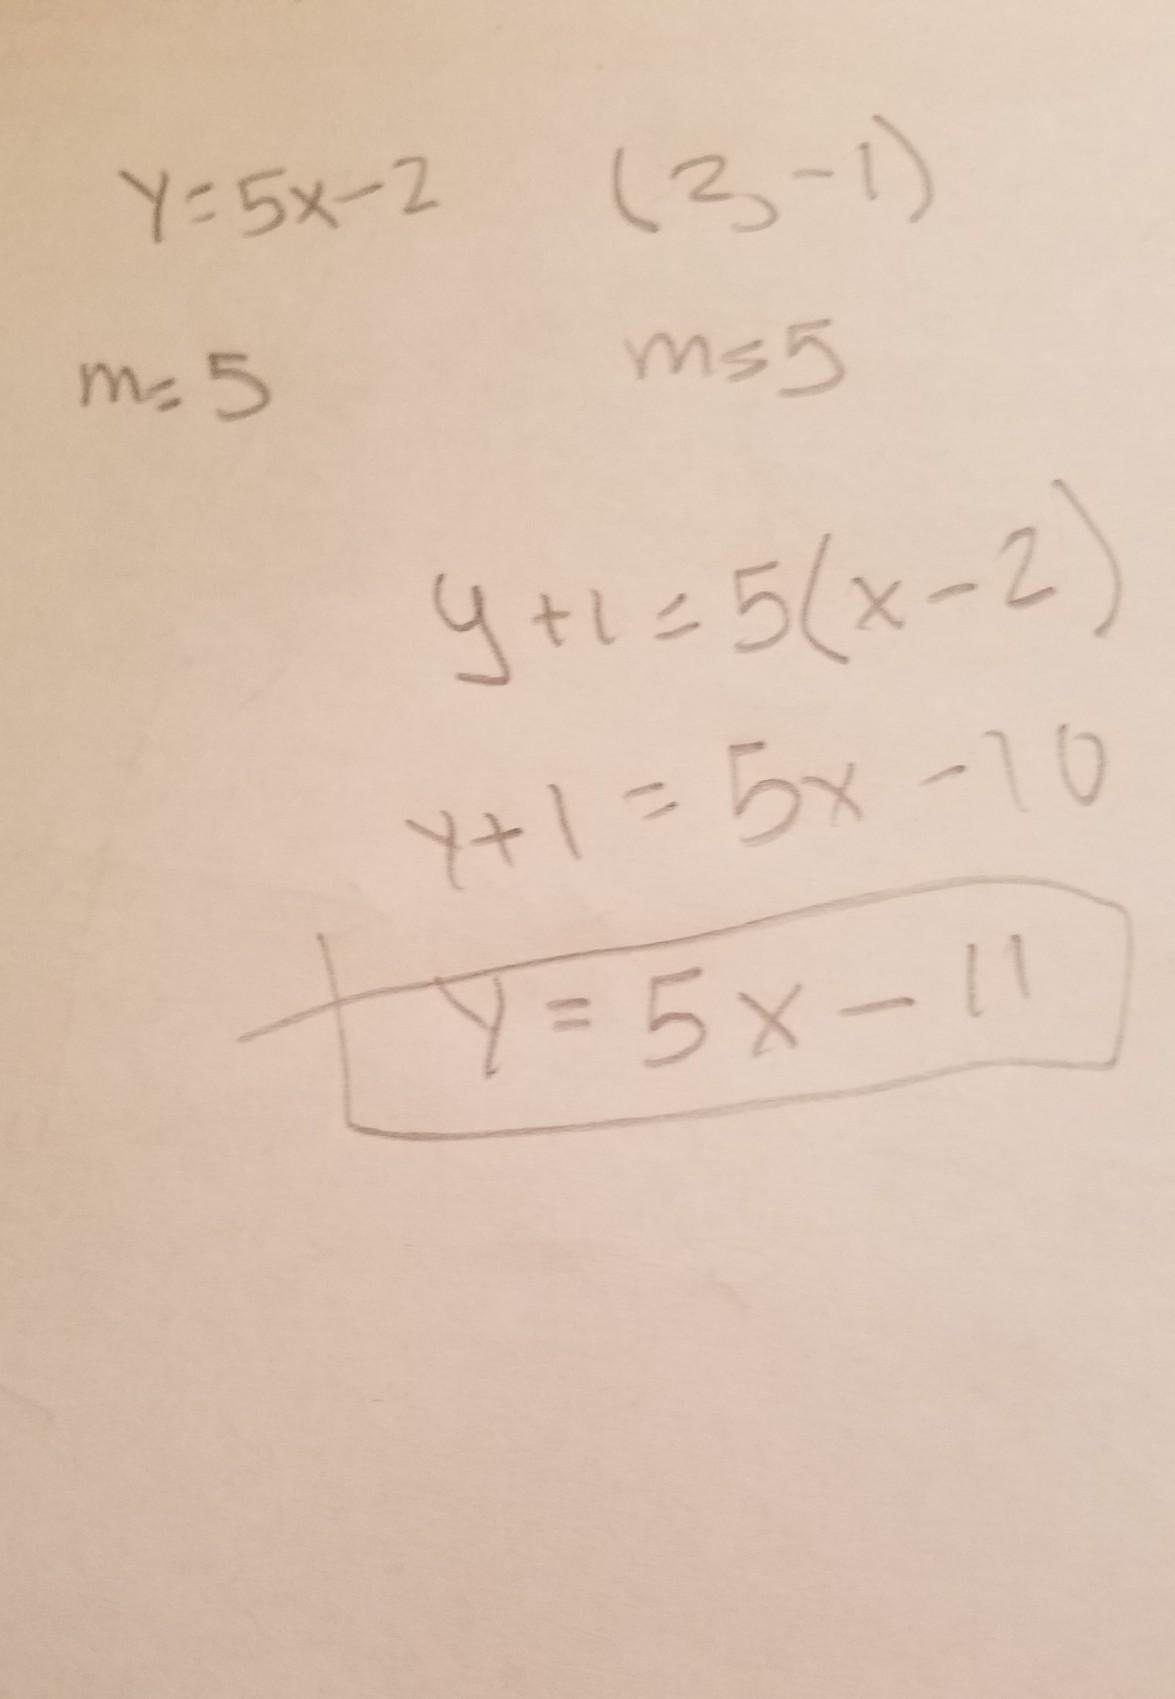 y=5x-2 (2,-1)
m=5 m=5
y+1=5(x-2)
y+1=5x-10
y=5x-11